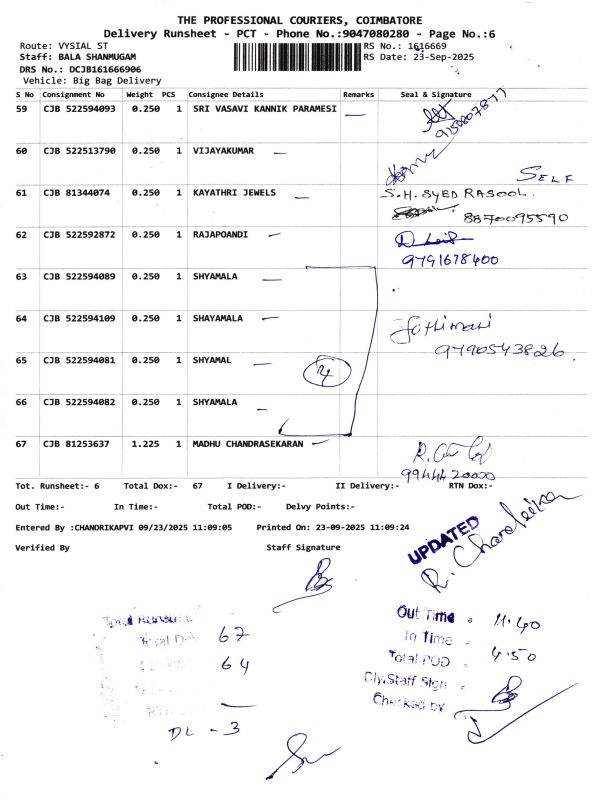 THE PROFESSIONAL COURIERS, COIMBATORE
Delivery Runsheet - PCT - Phone No.:9047080280 - Page No.:6
Route: VYSIAL ST
Staff: BALA SHANMUGAM
DRS No.: DCJB161666906
Vehicle: Big Bag Delivery
RS No.: 1616669
RS Date: 23-Sep-2025
S No Consignment No Weight PCS Consignee Details Remarks Seal & Signature
59 CJB 522594093 0.250 1 SRI VASAVI KANNIK PARAMESI
60 CJB 522513790 0.250 1 VIJAYAKUMAR
SELF
61 CJB 81344074 0.250 1 KAYATHRI JEWELS S.H. SYED RASOOL.
8870095590
62 CJB 522592872 0.250 1 RAJAPOANDI
9791678400
63 CJB 522594089 0.250 1 SHYAMALA
64 CJB 522594109 0.250 1 SHAYAMALA Jothimani
9790543826
65 CJB 522594081 0.250 1 SHYAMAL
66 CJB 522594082 0.250 1 SHYAMALA
67 CJB 81253637 1.225 1 MADHU CHANDRASEKARAN
9944420000
Tot. Runsheet:- 6 Total Dox:- 67 I Delivery:- II Delivery:- RTN Dox:-
Out Time:- In Time:- Total POD:- Delvy Points:-
Entered By :CHANDRIKAPVI 09/23/2025 11:09:05 Printed On: 23-09-2025 11:09:24
Verified By Staff Signature
UPDATED
Total Runsheet
Out Time 11.40
67
In Time
64
Total POD 4.50
Dly.Staff Sign
Checked by
DL - 3